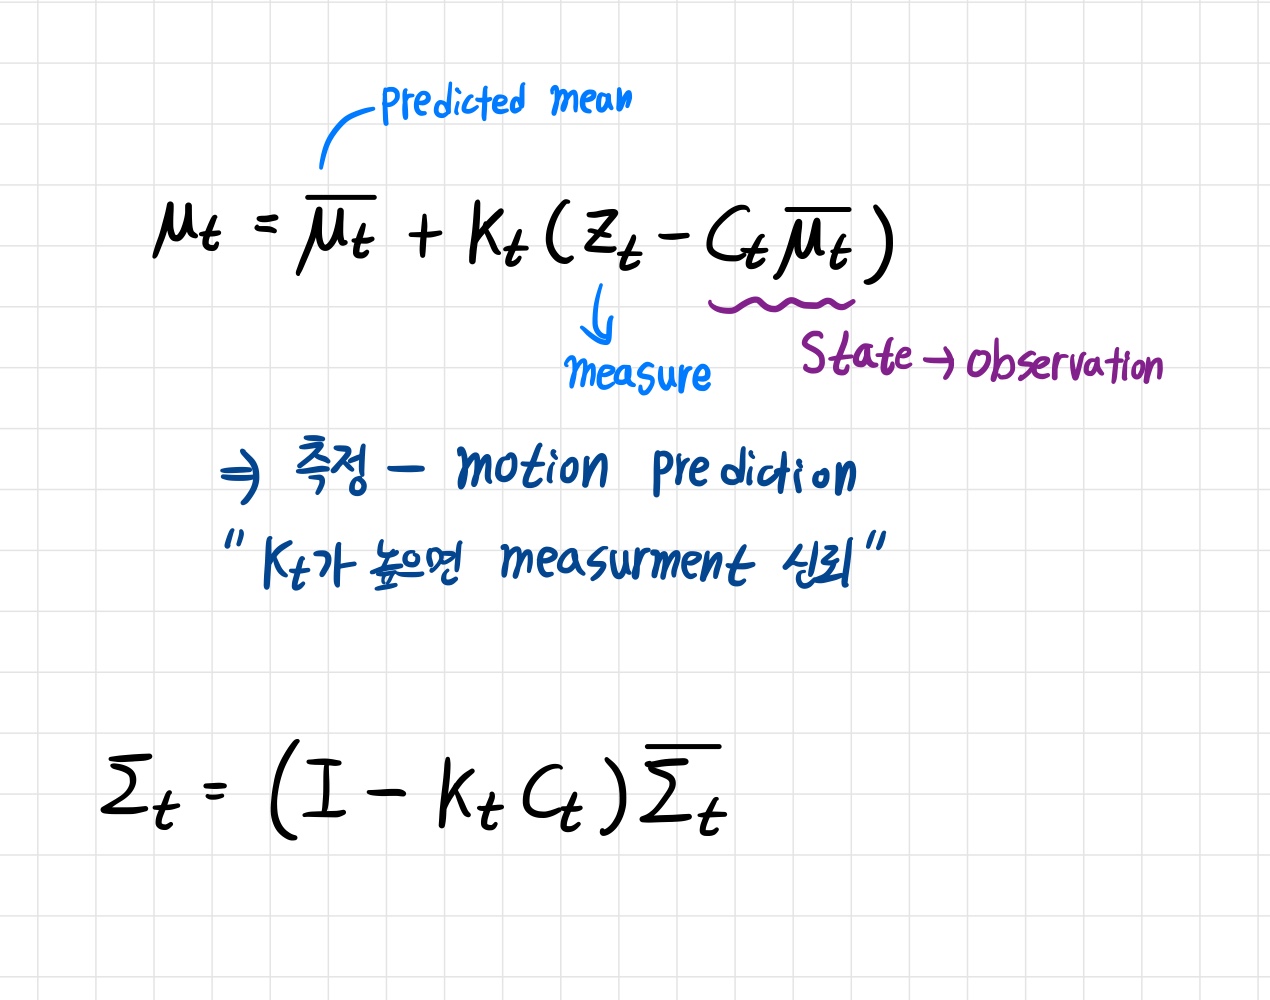 predicted mean
μt = μ̅t + Kt ( Zt − Ct μ̅t )
measure
State → observation
⇒ 측정 − motion prediction
" Kt가 높으면 measurment 신뢰 "
Σt = ( I − Kt Ct ) Σ̅t